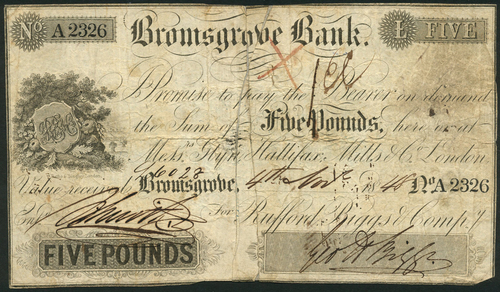 No. A 2326 Bromsgrove Bank. £ FIVE
I Promise to pay the Bearer on demand
the Sum of Five Pounds, here or at
Messrs. Glyn, Hallifax, Mills & Co. London
6023
Value received Bromsgrove, 4th Novr 1848 No A 2326
For Rufford, Biggs & Compy.
FIVE POUNDS Geo H Biggs